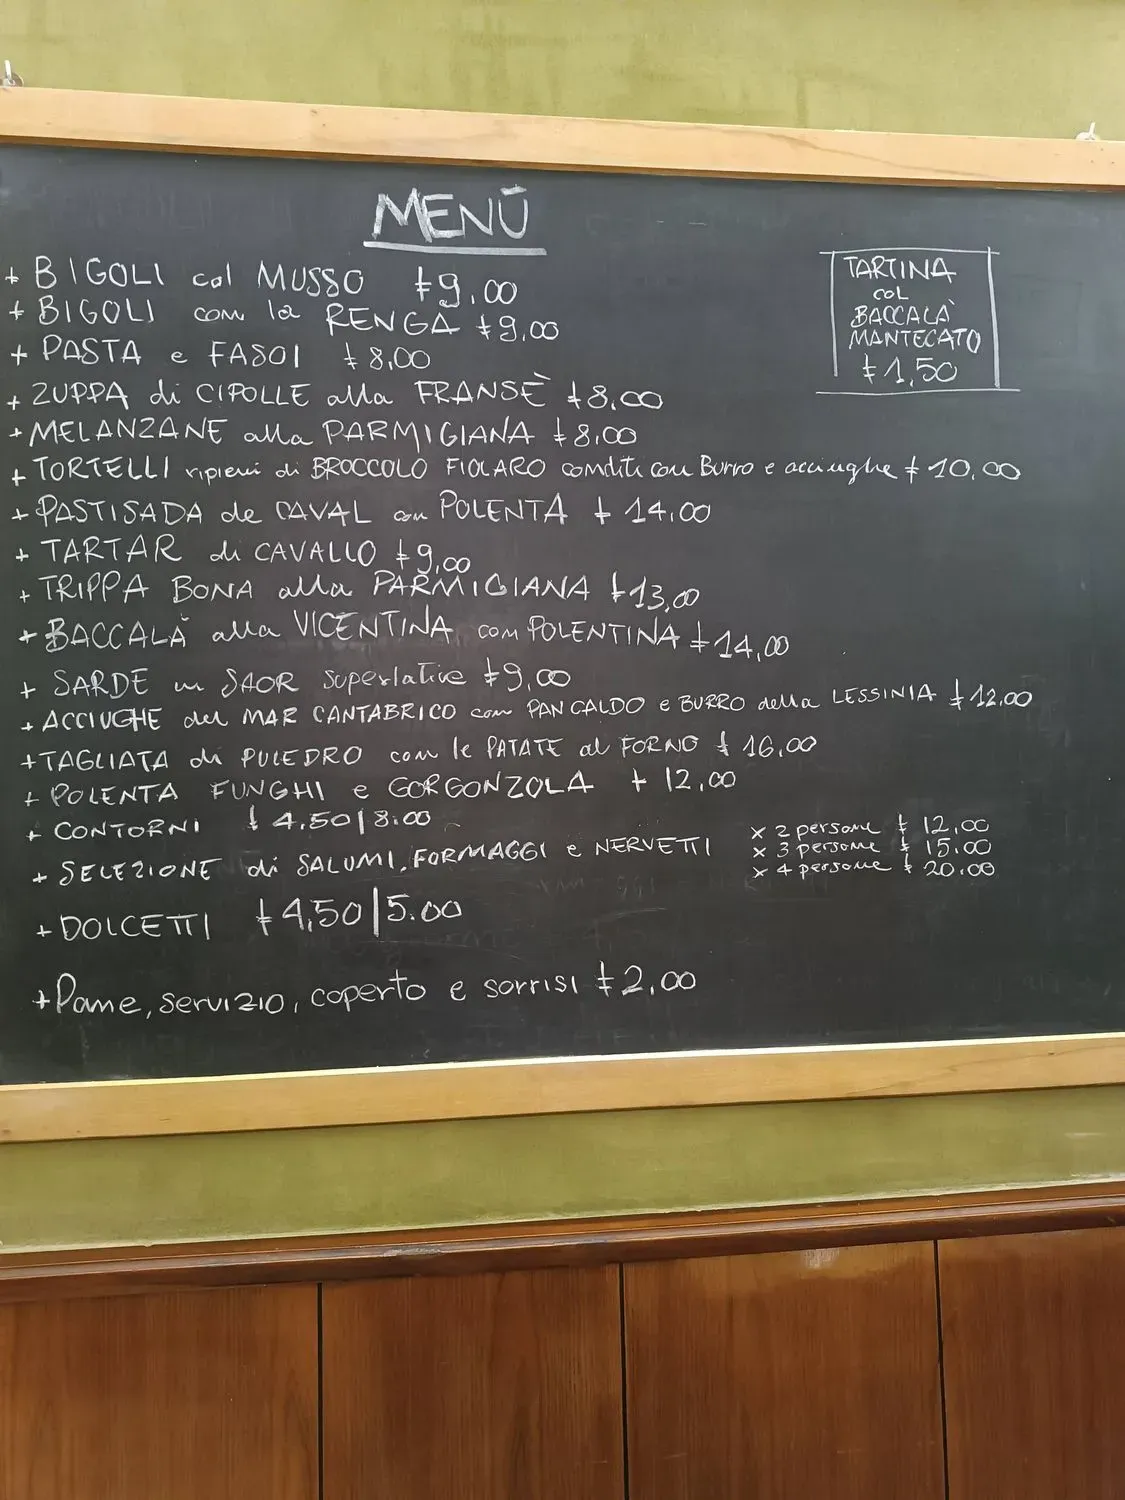 MENÙ
+ BIGOLI col MUSSO €9,00
+ BIGOLI con la RENGA €9,00
+ PASTA e FASOI €8,00
+ ZUPPA di CIPOLLE alla FRANSÈ €8,00
+ MELANZANE alla PARMIGIANA €8,00
+ TORTELLI ripieni di BROCCOLO FIOLARO conditi con Burro e acciughe € 10,00
+ PASTISADA de CAVAL con POLENTA € 14,00
+ TARTAR di CAVALLO €9,00
+ TRIPPA BONA alla PARMIGIANA €13,00
+ BACCALÀ alla VICENTINA con POLENTINA €14,00
+ SARDE in SAOR superlative €9,00
+ ACCIUGHE del MAR CANTABRICO con PAN CALDO e BURRO della LESSINIA €12,00
+ TAGLIATA di PULEDRO con le PATATE al FORNO € 16,00
+ POLENTA FUNGHI e GORGONZOLA € 12,00
+ CONTORNI € 4,50|8.00
+ SELEZIONE di SALUMI, FORMAGGI e NERVETTI
x 2 persone € 12,00
x 3 persone € 15,00
x 4 persone € 20,00
+ DOLCETTI €4,50|5.00
+ Pane, servizio, coperto e sorrisi €2,00
TARTINA
col
BACCALÀ
MANTECATO
€1,50